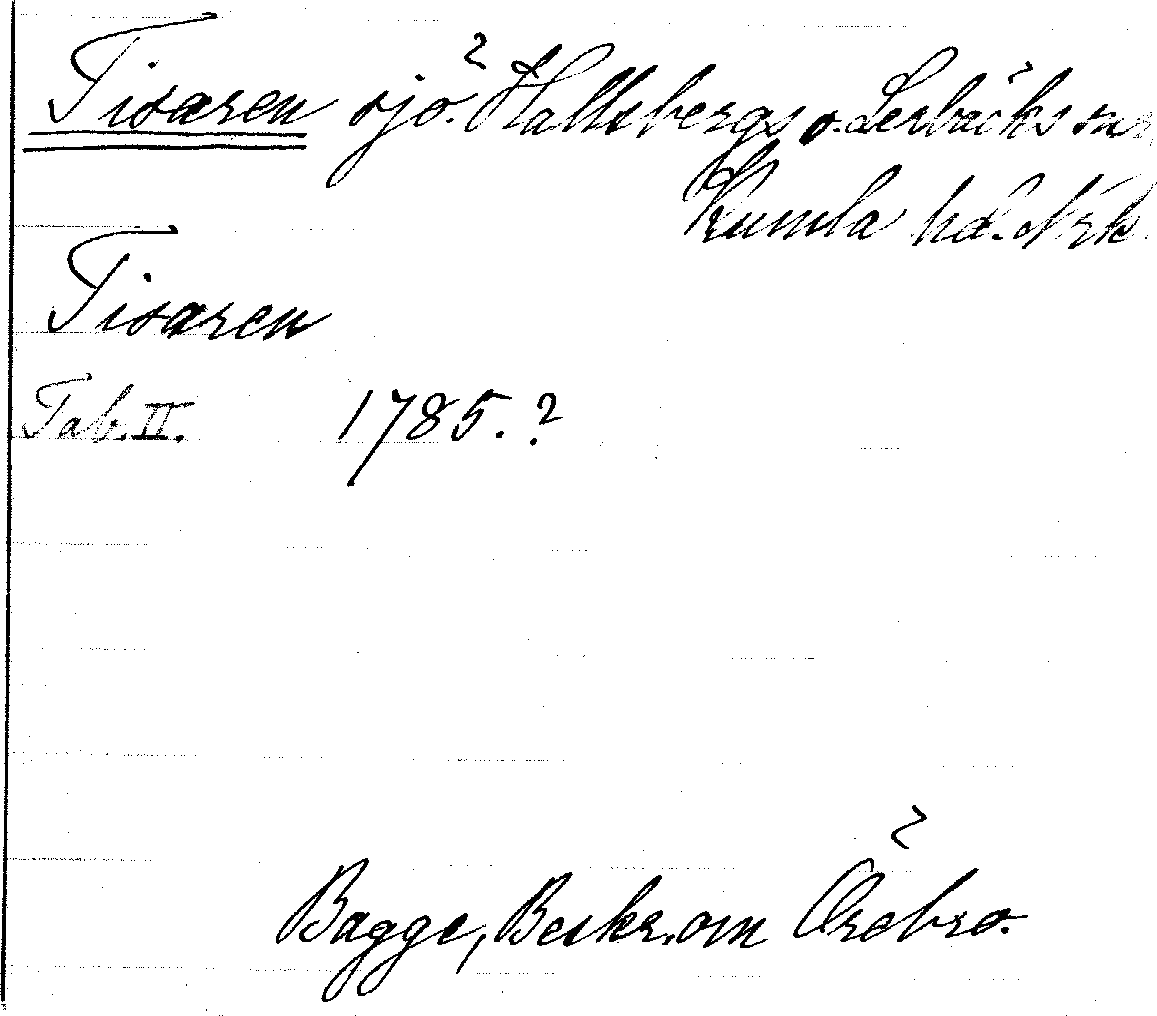 Tisaren sjö. Hallsbergs o. Lerbäcks snr
Kumla hd. Nrk.
Tisaren
Tab. II. 1785. ?
Bagge, Beskr. om Örebro.